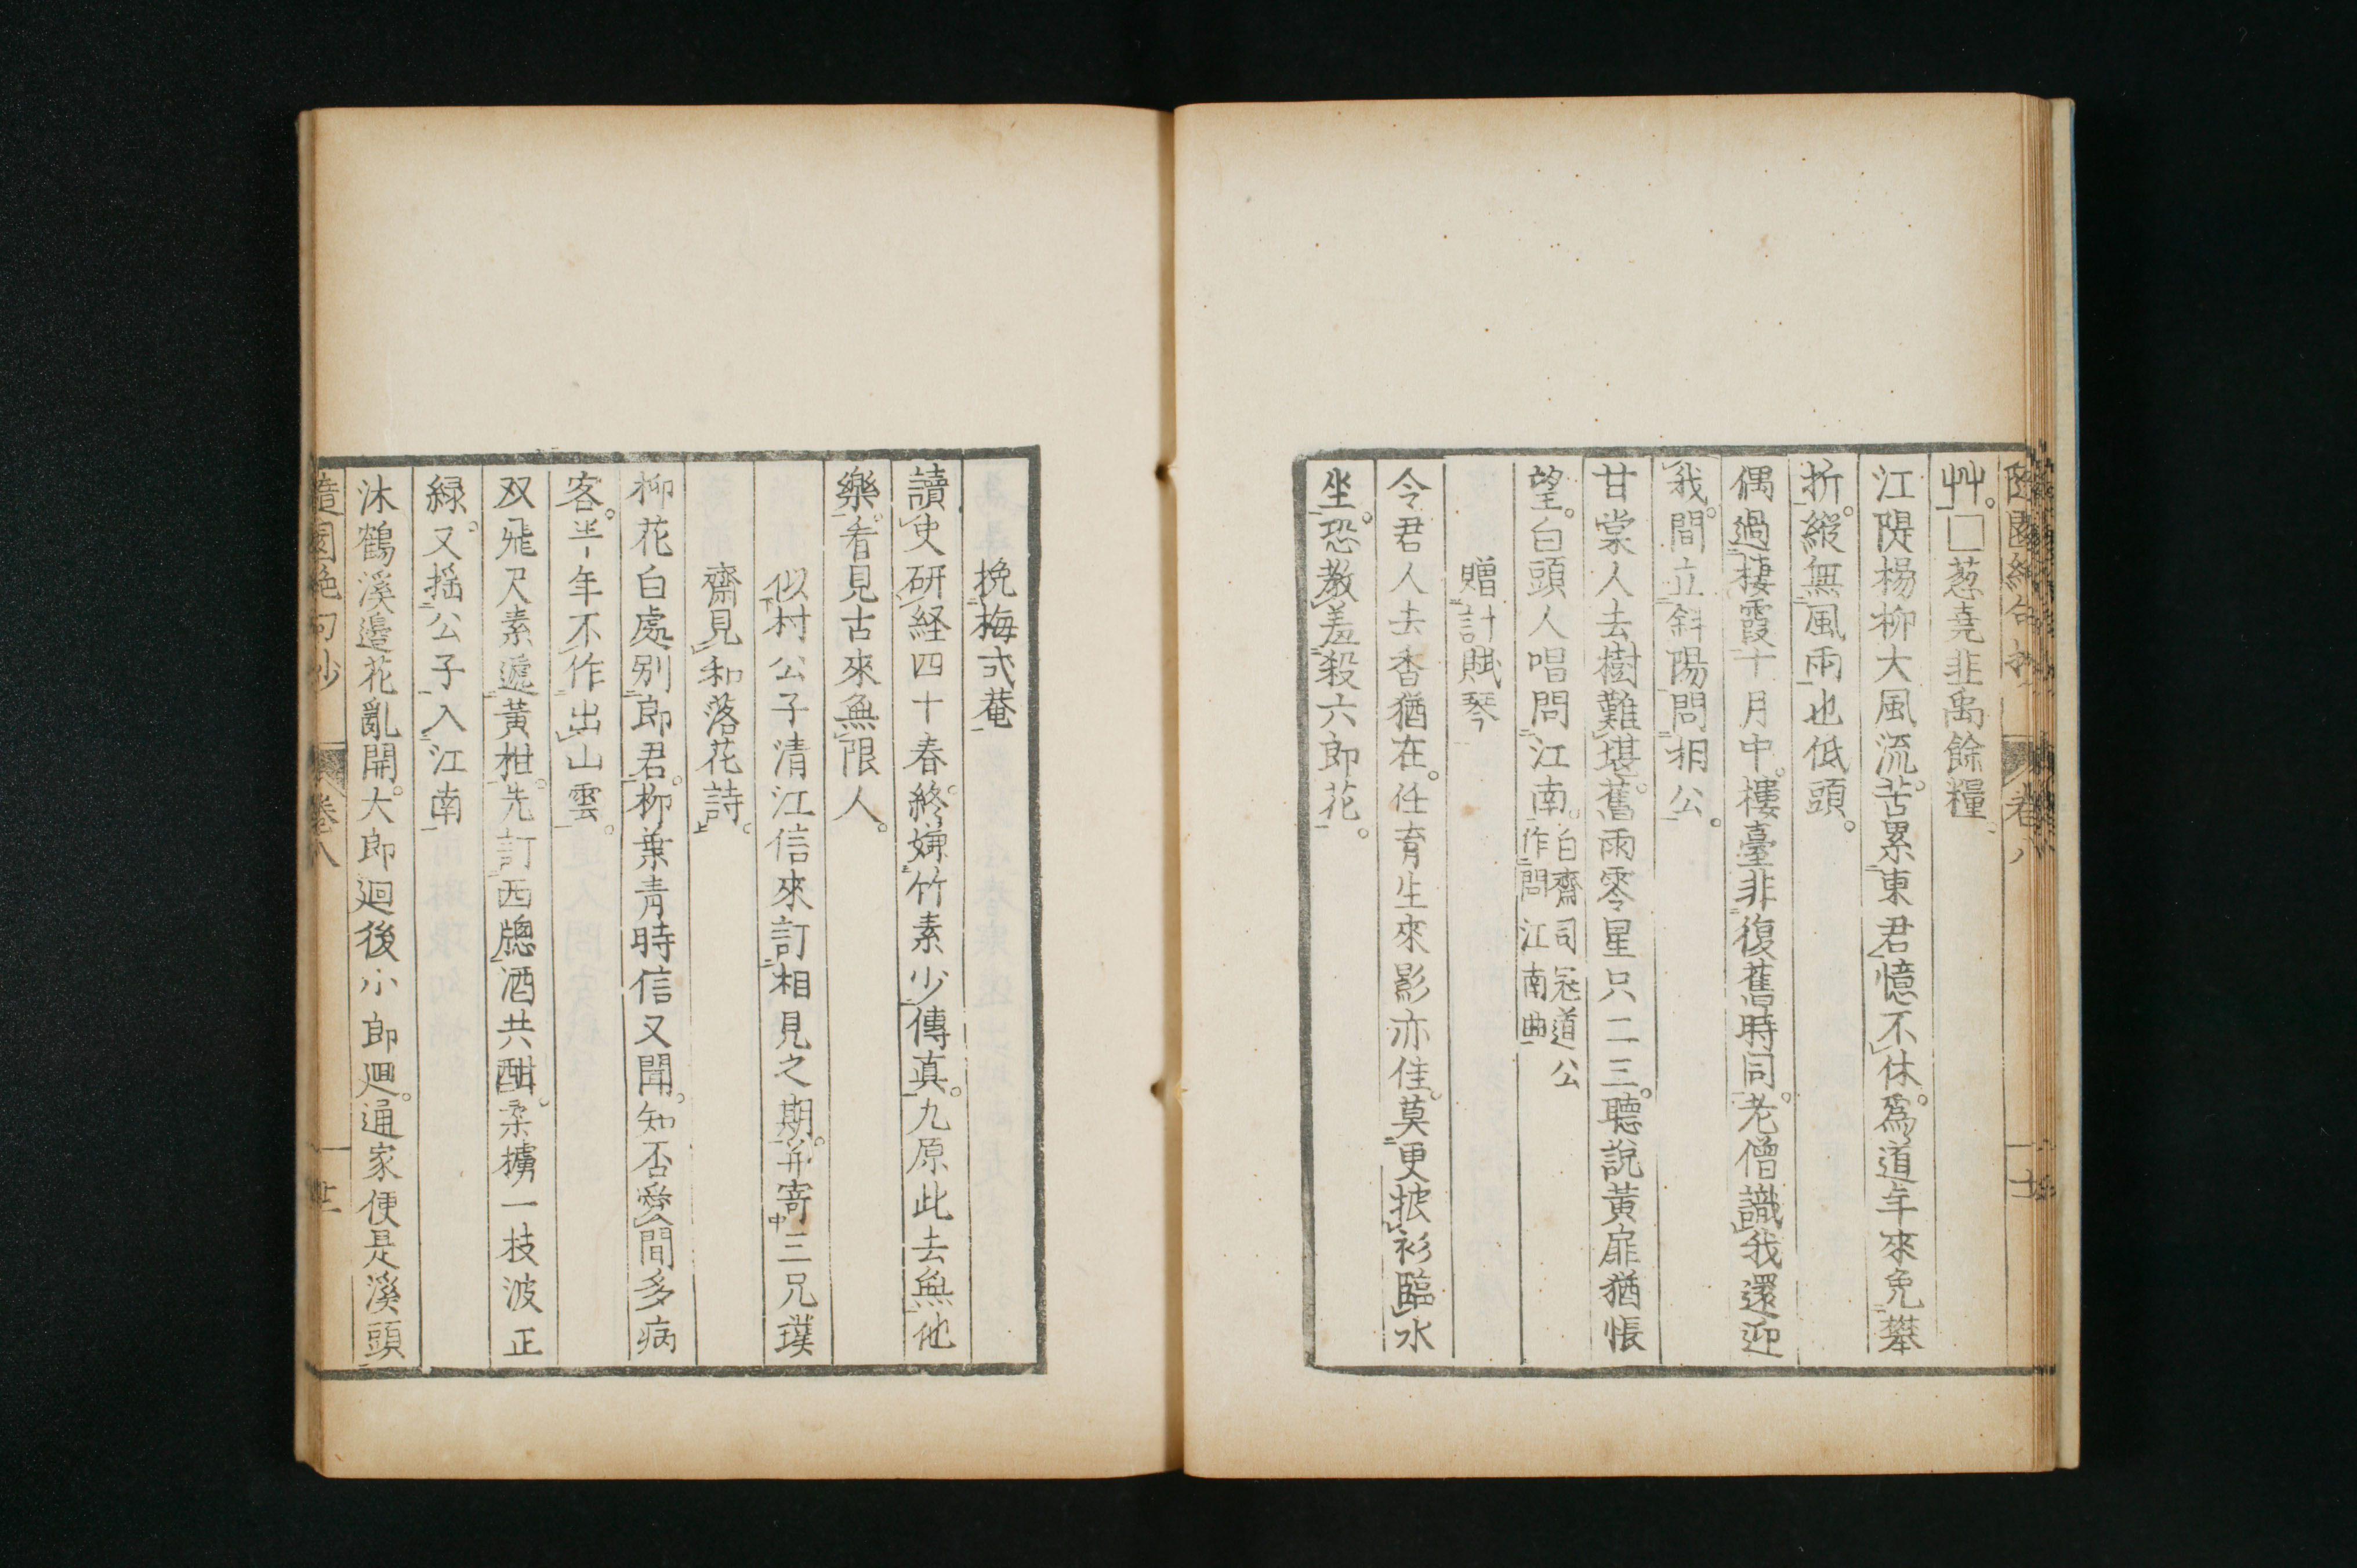 艸。□葱堯韭禹餘糧。
江隄楊柳大風流。苦累東君憶不休。爲道年來免攀
折。縱無風雨也低頭。
偶過棲霞十月中。樓臺非復舊時同。老僧識我還迎
我。閒立斜陽問相公。
甘棠人去樹難堪。舊雨零星只二三。聽說黃扉猶悵
望。白頭人唱問江南。白齋司寇道公
作問江南曲
贈計賦琴
令君人去香猶在。任育生來影亦佳。莫更披衫臨水
坐。恐教羞殺六郎花。
挽梅式菴
讀史研経四十春。終嫌竹素少傳真。九原此去無他
樂。看見古來無限人。
似村公子清江信來訂相見之期。并寄三兄璞
齋見和落花詩。
柳花白處别郎君。柳葉青時信又聞。知否愛閒多病
客。半年不作出山雲。
双飛尺素遞黃柑。先訂西牕酒共酣。柔櫓一枝波正
緑。又摇公子入江南
沐鶴溪邊花亂開。大郎廻後小郎廻。通家便是溪頭
隨園絶句抄 卷八